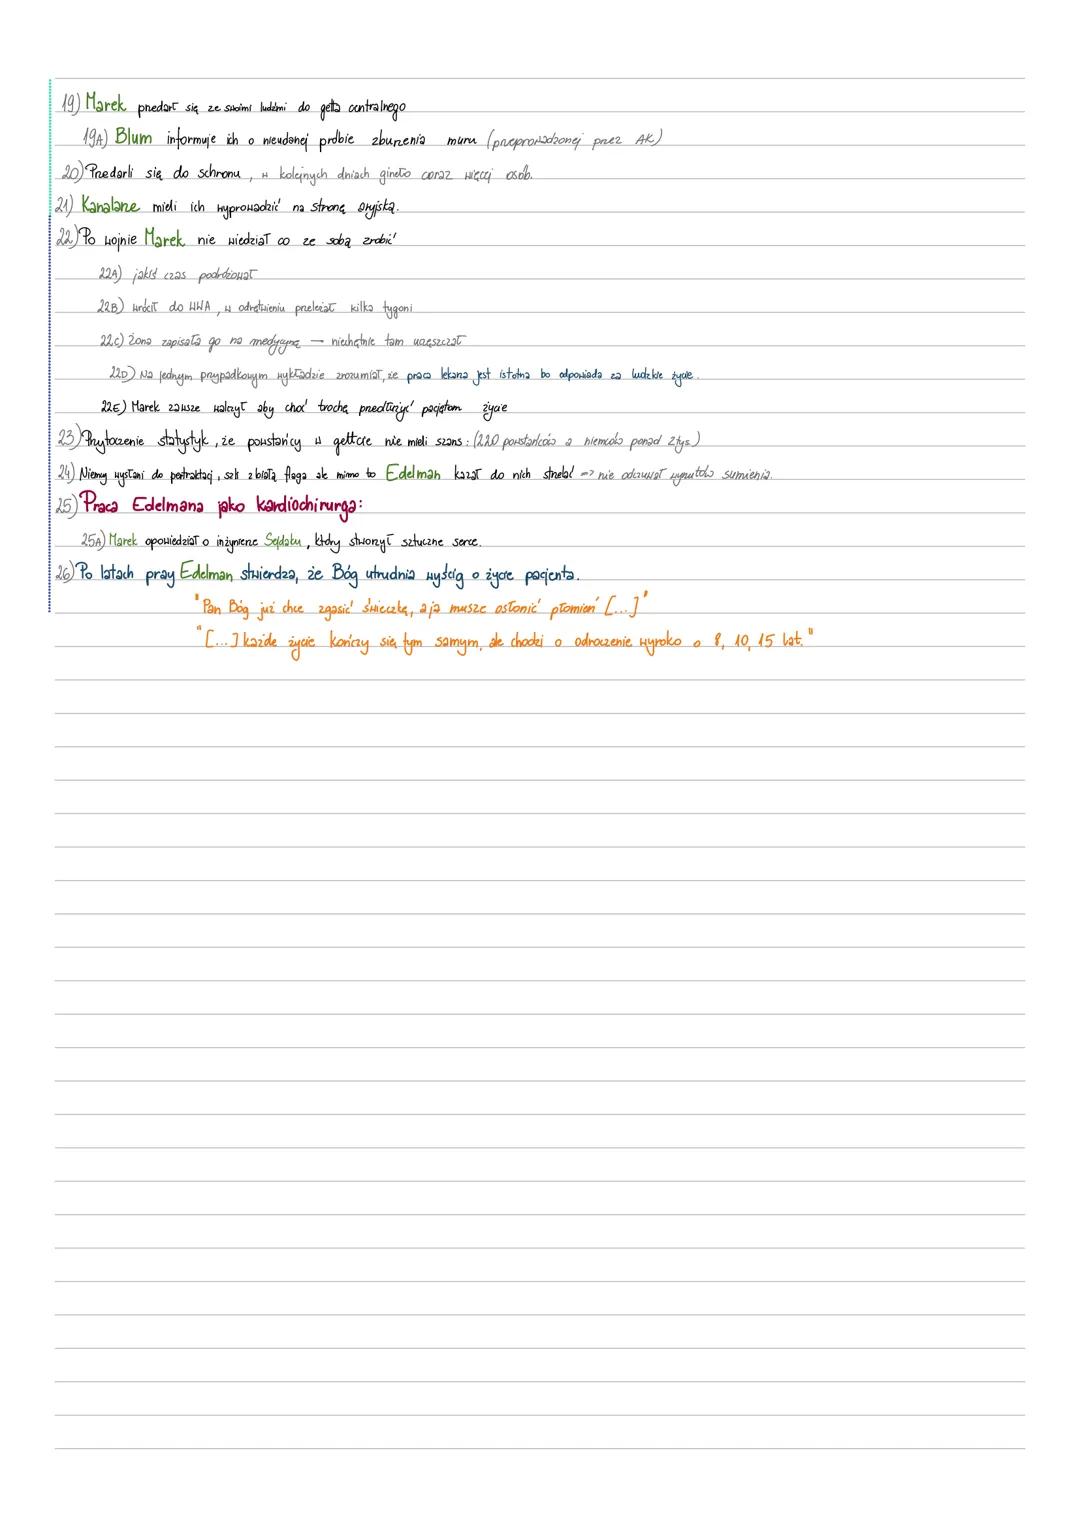 19) Marek przedarł się ze swoimi ludźmi do getta centralnego
19A) Blum informuje ich o nieudanej próbie zburzenia muru (przeprowadzonej przez AK)
20) Przedarli się do schronu, w kolejnych dniach ginęło coraz więcej osób.
21) Kanalarze mieli ich wyprowadzić na stronę aryjską.
22) Po wojnie Marek nie wiedział co ze sobą zrobić
22A) jakiś czas podróżował
22B) wrócił do WWA, w odrętwieniu przeleżał kilka tygoni
22C) żona zapisała go na medycynę — niechętnie tam uczęszczał
22D) Na jednym przypadkowym wykładzie zrozumiał, że praca lekarza jest istotna bo odpowiada za ludzkie życie.
22E) Marek zawsze walczył aby choć trochę przedłużyć pacjętom życie
23) Przytoczenie statystyk, że powstańcy w gettcie nie mieli szans: (220 powstańców a niemców ponad 2tys.)
24) Niemcy wysłani do pertraktacji, szli z białą flagą ale mimo to Edelman kazał do nich strzelać => nie odczuwał wyrzutów sumienia.
25) Praca Edelmana jako kardiochirurga:
25A) Marek opowiedział o inżynierze Sejdaku, który stworzył sztuczne serce.
26) Po latach pracy Edelman stwierdza, że Bóg utrudnia wyścig o życie pacjenta.
"Pan Bóg już chce zgasić świeczkę, a ja muszę osłonić płomień [...]"
"[...] każde życie kończy się tym samym, ale chodzi o odroczenie wyroko o 8, 10, 15 lat."